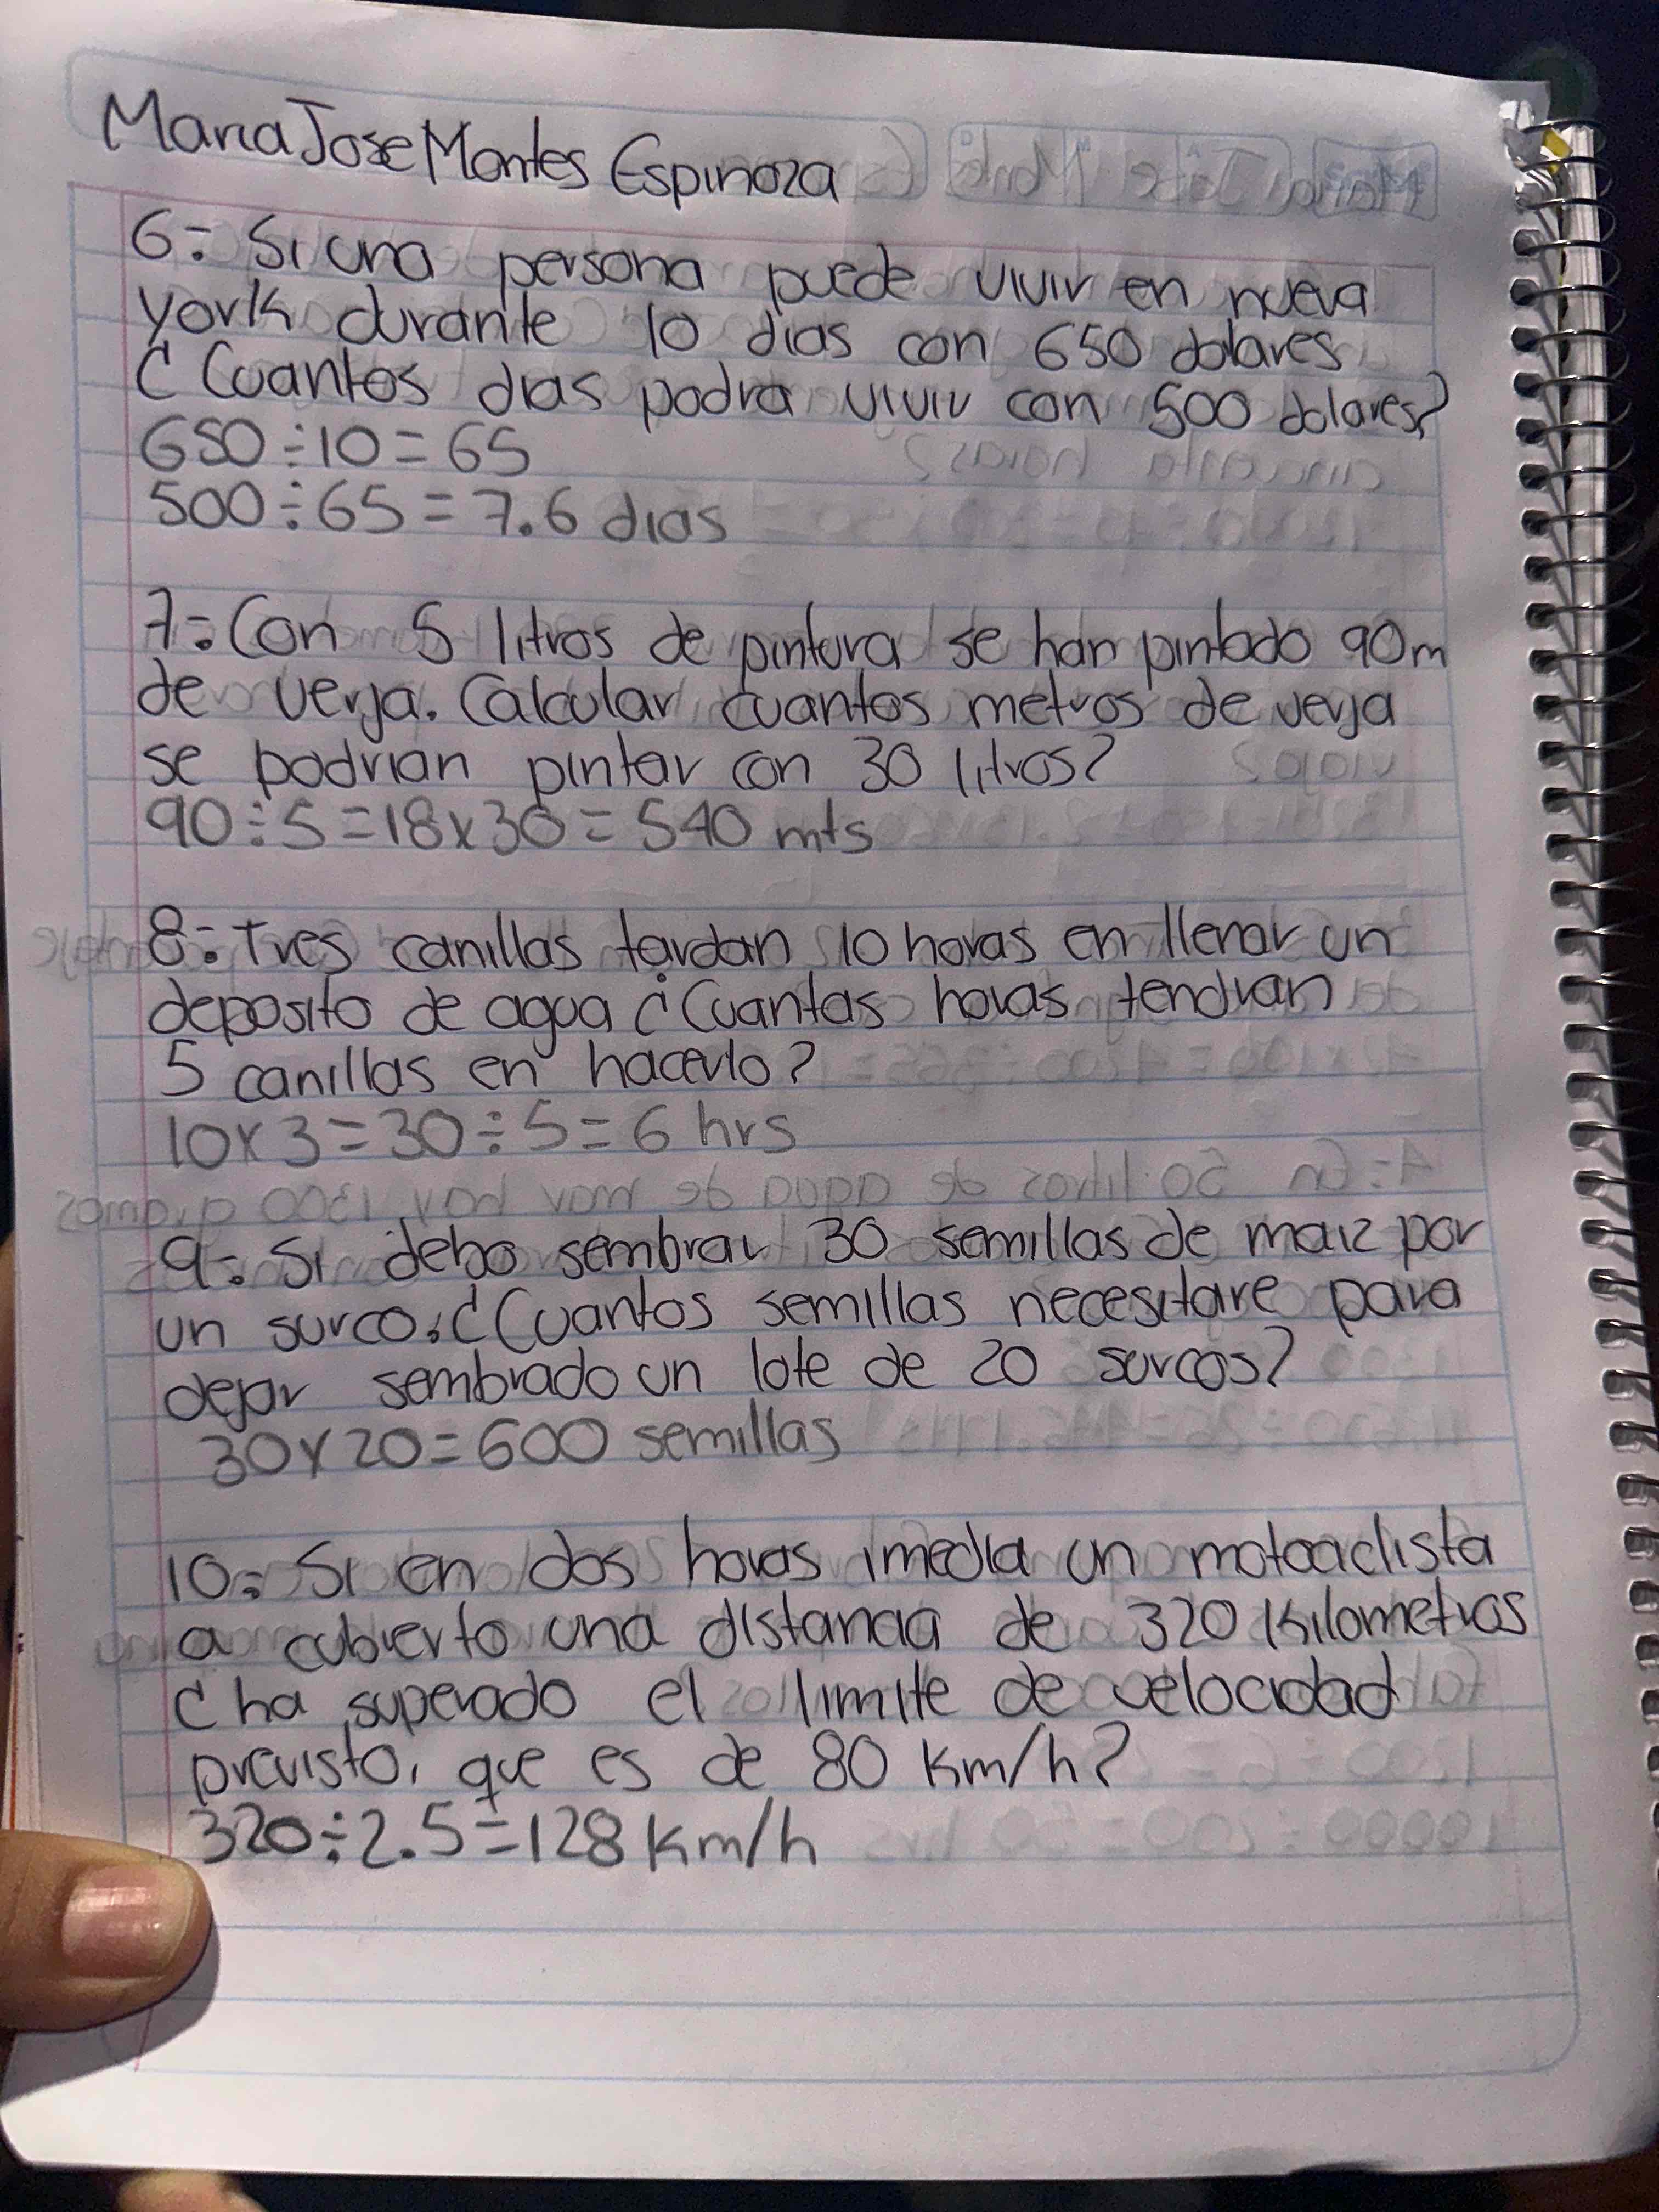 Maria Jose Montes Espinoza
6:- Si una persona puede vivir en nueva
york durante 10 dias con 650 dolares
¿Cuantos dias podra vivir con 500 dolares?
650÷10=65
500÷65=7.6 dias
7:-Con 5 litros de pintura se han pintado 90m
de verja. Calcular cuantos metros de verja
se podrian pintar con 30 litros?
90÷5=18x30=540 mts
8:-Tres canillas tardan 10 horas en llenar un
deposito de agua ¿Cuantas horas tendran
5 canillas en hacerlo?
10x3=30÷5=6 hrs
9:- Si debo sembrar 30 semillas de maiz por
un surco.¿Cuantos semillas necesitare para
dejar sembrado un lote de 20 surcos?
30x20=600 semillas
10:- Si en dos horas imedia un motociclista
a cubierto una distancia de 320 Kilometros
¿ha superado el limite de velocidad
previsto, que es de 80 Km/h?
320÷2.5=128 Km/h